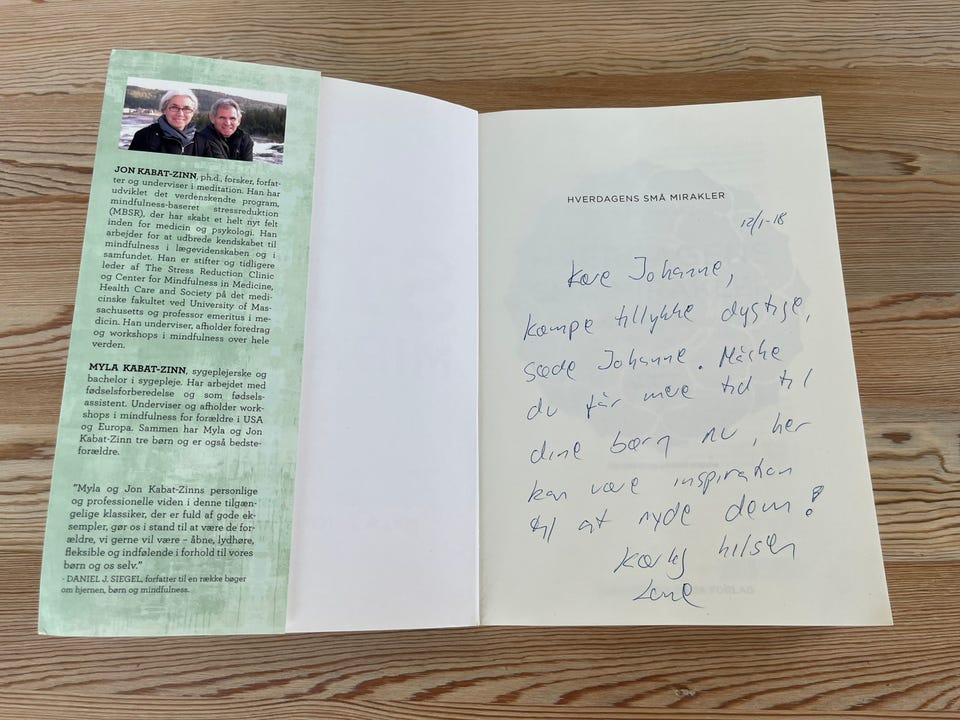 JON KABAT-ZINN, ph.d., forsker, forfat-
ter og underviser i meditation. Han har
udviklet det verdenskendte program,
mindfulness-baseret stressreduktion
(MBSR), der har skabt et helt nyt felt
inden for medicin og psykologi. Han
arbejder for at udbrede kendskabet til
mindfulness i lægevidenskaben og i
samfundet. Han er stifter og tidligere
leder af The Stress Reduction Clinic
og Center for Mindfulness in Medicine,
Health Care and Society på det medi-
cinske fakultet ved University of Mas-
sachusetts og professor emeritus i me-
dicin. Han underviser, afholder foredrag
og workshops i mindfulness over hele
verden.
MYLA KABAT-ZINN, sygeplejerske og
bachelor i sygepleje. Har arbejdet med
fødselsforberedelse og som fødsels-
assistent. Underviser og afholder work-
shops i mindfulness for forældre i USA
og Europa. Sammen har Myla og Jon
Kabat-Zinn tre børn og er også bedste-
forældre.
"Myla og Jon Kabat-Zinns personlige
og professionelle viden i denne tilgæn-
gelige klassiker, der er fuld af gode ek-
sempler, gør os i stand til at være de for-
ældre, vi gerne vil være – åbne, lydhøre,
fleksible og indfølende i forhold til vores
børn og os selv."
- DANIEL J. SIEGEL, forfatter til en række bøger
om hjernen, børn og mindfulness.
HVERDAGENS SMÅ MIRAKLER
12/1-18
Kære Johanne,
kæmpe tillykke dygtige,
søde Johanne. Måske
du får mere tid til
dine børn nu, her
kan være inspiration
til at nyde dem!
Kærlig hilsen
Lone